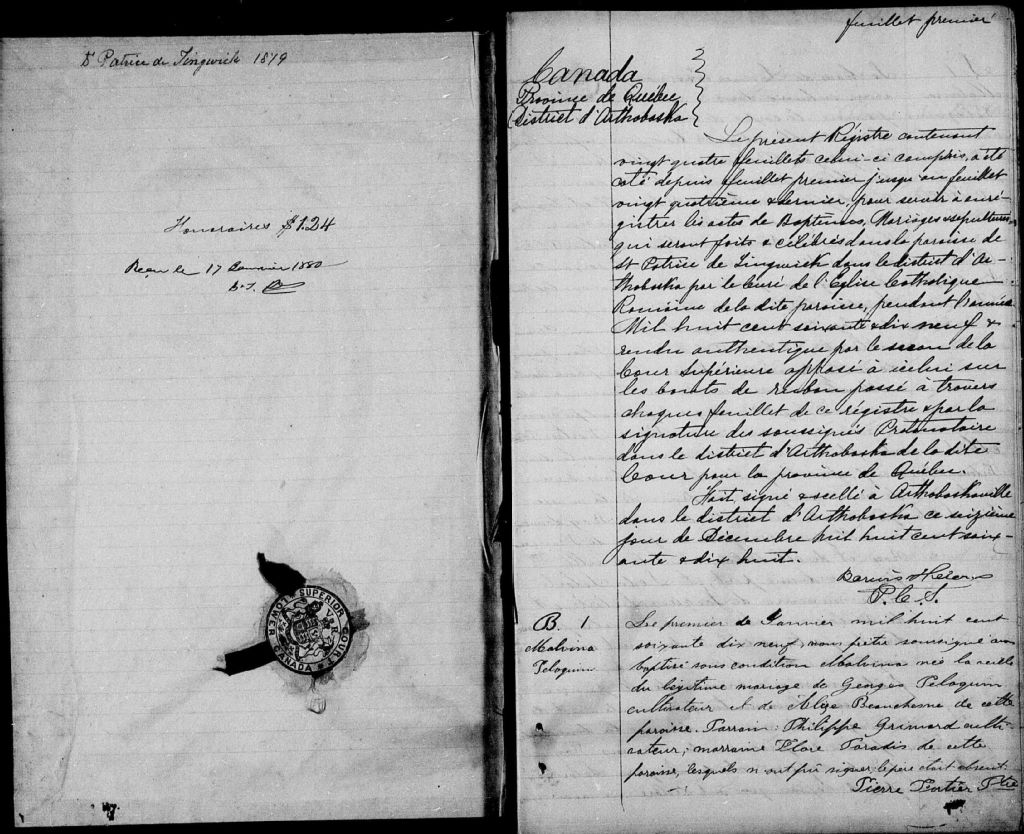 St Patrice de Tingwick 1879
Honoraires $1.24
Reçu le 17 Janvier 1880
LOWER SUPERIOR COURT
CANADA
feuillet premier
Canada
Province de Québec
District d'Arthabaska
Le présent Régistre contenant
vingt quatre feuillets celui-ci compris, a été
coté depuis feuillet premier jusqu'au feuillet
vingt quatrième & dernier, pour servir à enré-
gistrer les actes de Baptêmes, Mariages & sépultures
qui seront faits & célébrés dans la paroisse de
St Patrice de Tingwick dans le district d'Ar-
thabaska par le Curé de l'Eglise Catholique
Romaine de la dite paroisse, pendant l'année
Mil huit cent soixante & dix neuf &
rendu authentique par le sceau de la
Cour Supérieure apposé à icelui sur
les bouts de ruban passé à travers
chaque feuillet de ce régistre & par la
signature des soussignés Protonotaire
dans le district d'Arthabaska de la dite
Cour pour la province de Québec.
Fait signé & scellé à Arthabaskaville
dans le district d'Arthabaska ce seizième
jour de Décembre huit cent soix-
ante & dix huit.
P. C. S.
B. 1
Malvina
Peloquin
Le premier de Janvier mil huit cent
soixante dix neuf, nous prêtre soussigné avons
baptisé sous condition Malvina née la veille
du légitime mariage de Georges Peloquin
cultivateur et de Alize Beauchesne de cette
paroisse. Parrain: Philippe Grimard culti-
vateur; marraine Flore Paradis de cette
paroisse, lesquels n'ont pu signer, le père était absent.
Pierre Portier Ptre